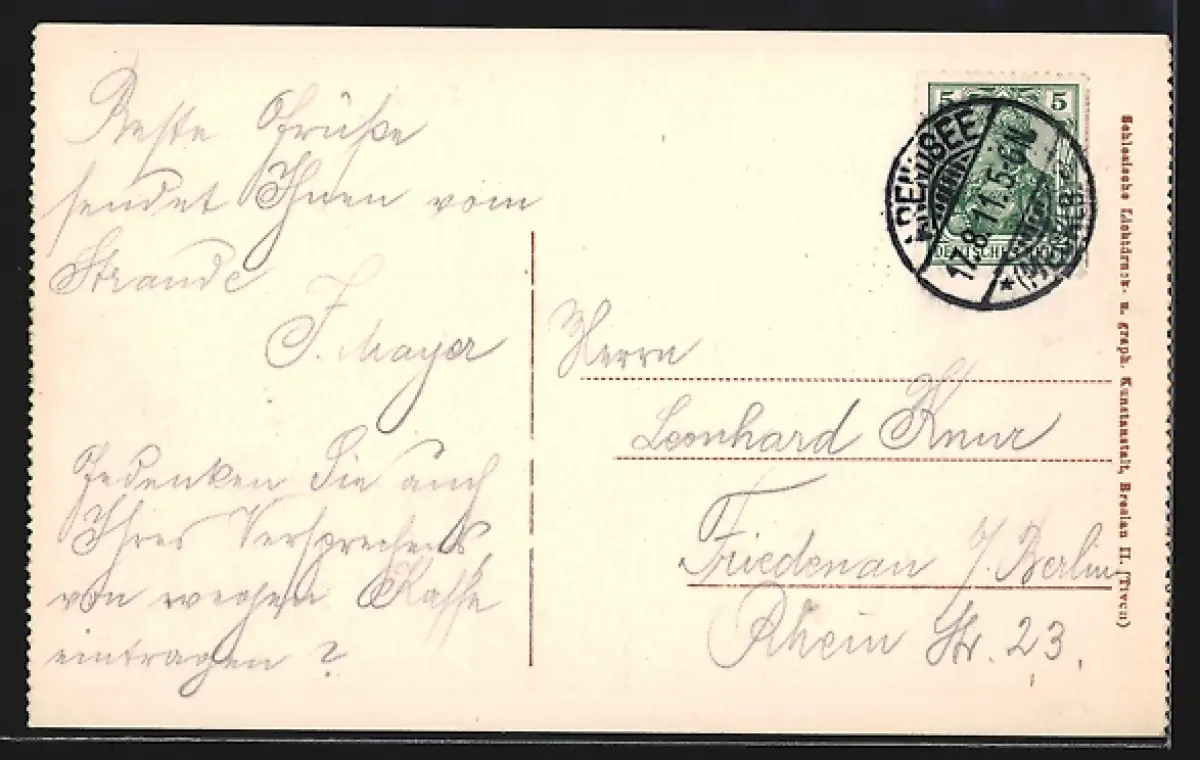 Beste Grüße
sendet Ihnen vom
Strande
J. Mayer
Gedenken Sie auch
Ihres Versprechens
von wegen Kasse
eintragen?
5 5
DEUTSCHES REICH
ARENDSEE
17.8.11. 5-6N.
Herrn
Leonhard Knur
Friedenau b/ Berlin
Rhein Str. 23.
Schlesische Lichtdruck- u. graph. Kunstanstalt, Breslau II. (Tivoli)